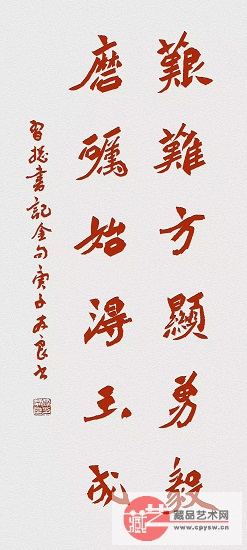 艱難方顯勇毅
磨礪始得玉成
習總書記金句庚子友良书
藏艺
藏品艺术网
www.cpysw.cn